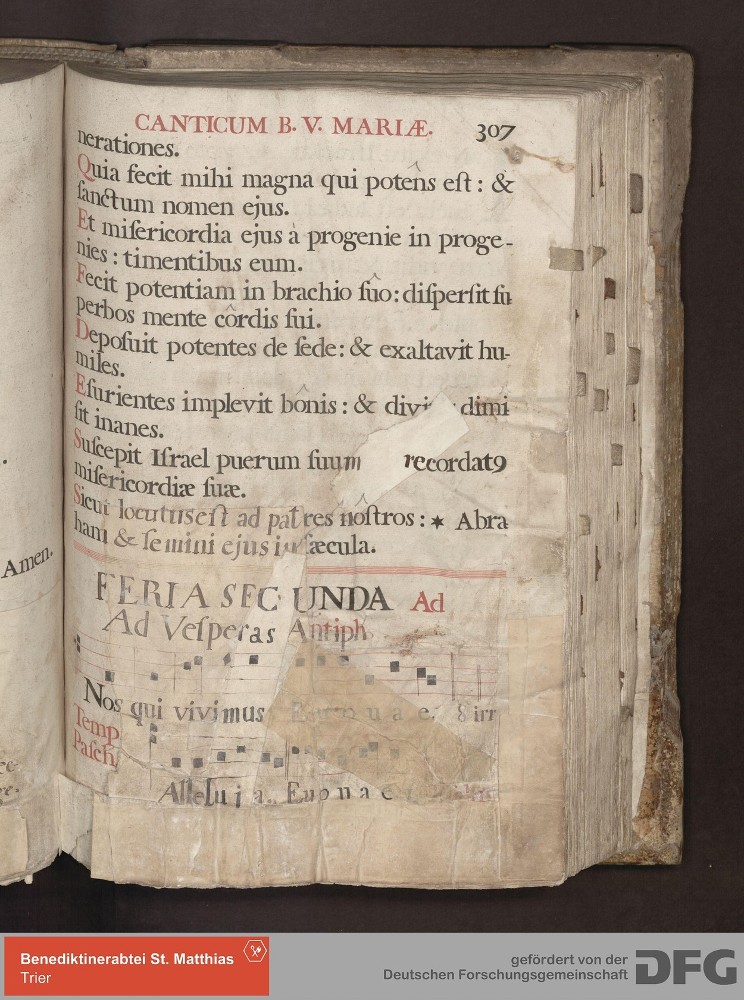 CANTICUM B. V. MARIÆ. 307
nerationes.
Quia fecit mihi magna qui potêns eſt : &
ſanctum nomen ejus.
Et miſericordia ejus à progenie in proge-
nies : timentibus eum.
Fecit potentiam in brachio ſûo : diſperſit ſu
perbos mente côrdis ſui.
Depoſuit potentes de ſede : & exaltavit hu-
miles.
Eſurientes implevit bônis : & dimî
ſit inanes.
Suſcepit Iſrael puerum ſuum recordat9
miſericordiæ ſuæ.
Sicut locutus eſt ad patres nôſtros : ★ Abra
ham & ſemini ejus in ſæcula.
FERIA SECUNDA Ad
Ad Veſperas Antiph.
Nos qui vivimus E u o u a e. 8 irr
Temp.
Paſch.
Alleluja. Euouae
Amen.
Benediktinerabtei St. Matthias
Trier
gefördert von der
Deutschen Forschungsgemeinschaft
DFG